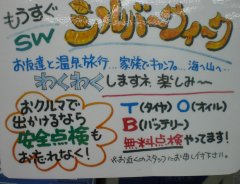 もうすぐ
SW シルバーウィーク
お友達と温泉旅行… 家族でキャンプ… 海へ山へ…
わくわくしますネ。楽しみ〜
おクルマで
出かけるなら
安全点検も
お忘れなく!
T(タイヤ) O(オイル)
B(バッテリー)
無料点検 やってます!
※お近くのスタッフにお申し付け下さい。